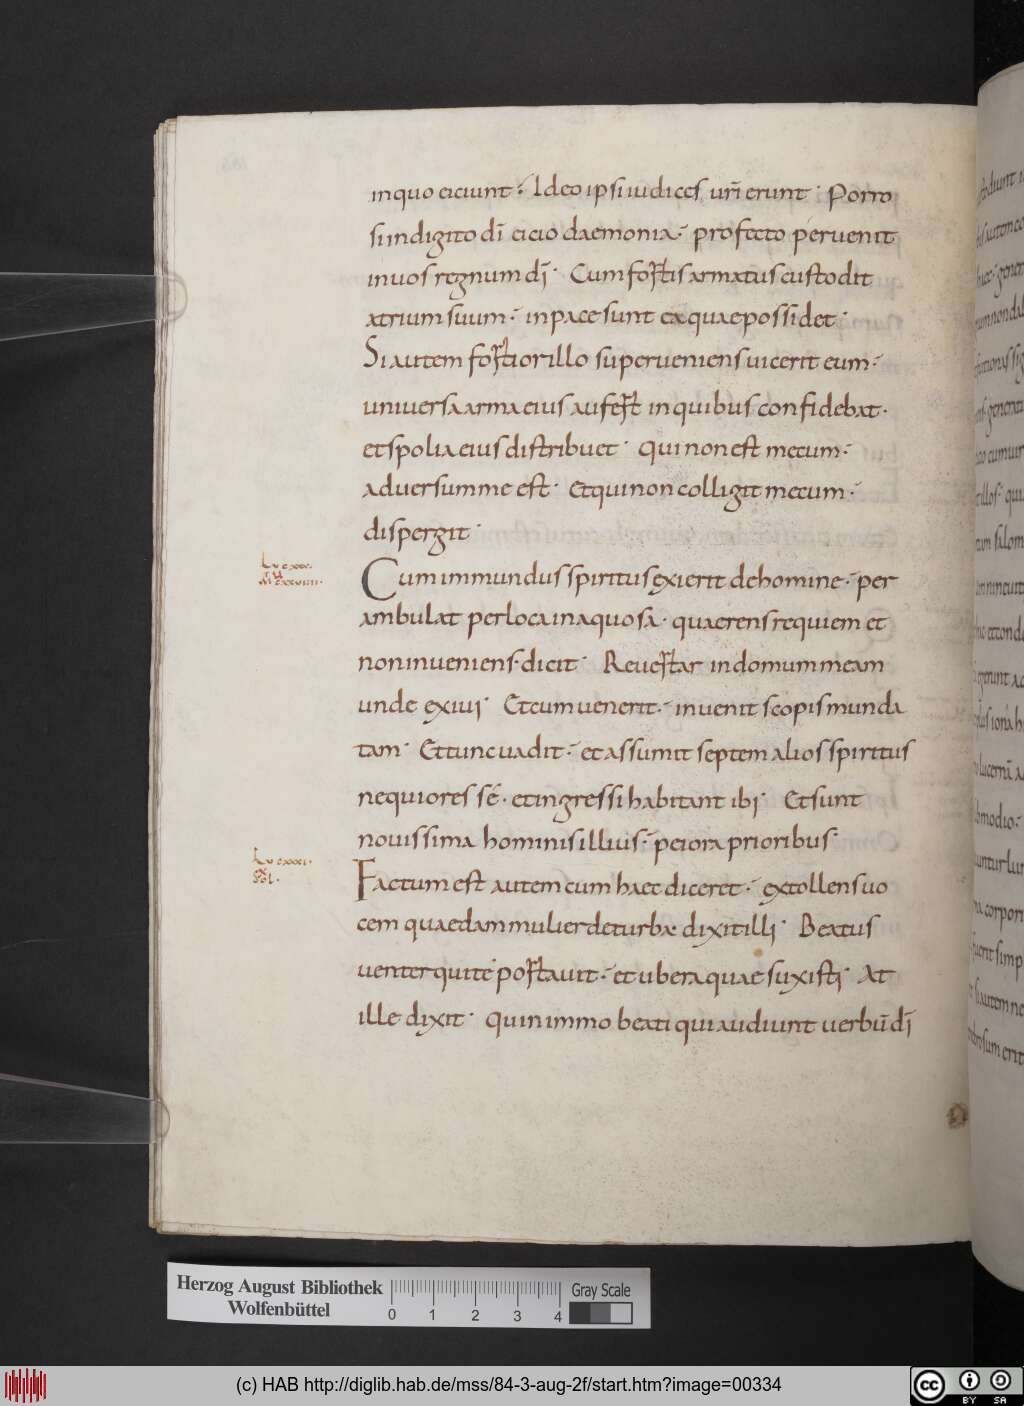 in quo eiciunt· Ideo ipsi iudices urī erunt· Porro
si in digito dī eicio daemonia· profecto peruenit
in uos regnum dī· Cum fortis armatus custodit
atrium suum· in pace sunt ea quae possidet·
Si autem fortior illo superueniens uicerit eum·
uniuersa arma eius aufert in quibus confidebat·
et spolia eius distribuet· Qui non est mecum·
aduersum me est· Et qui non colligit mecum·
dispergit·
Lu cxxx·
Cum immundus spiritus exierit de homine· per
ambulat per loca inaquosa· quaerens requiem et
non inueniens· dicit· Reuertar in domum meam
unde exiui· Et cum uenerit· inuenit scopis munda
tam· Et tunc uadit· et assumit septem alios spiritus
nequiores sē· et ingressi habitant ibi· Et sunt
nouissima hominis illius· peiora prioribus·
Lu cxxxi·
Sol·
Factum est autem cum haec diceret· extollens uo
cem quaedam mulier de turba dixit illi· Beatus
uenter qui te portauit· et ubera quae suxisti· At
ille dixit· Quin immo beati qui audiunt uerbū dī
Herzog August Bibliothek
Wolfenbüttel
0 1 2 3 4
Gray Scale
(c) HAB http://diglib.hab.de/mss/84-3-aug-2f/start.htm?image=00334
cc BY SA